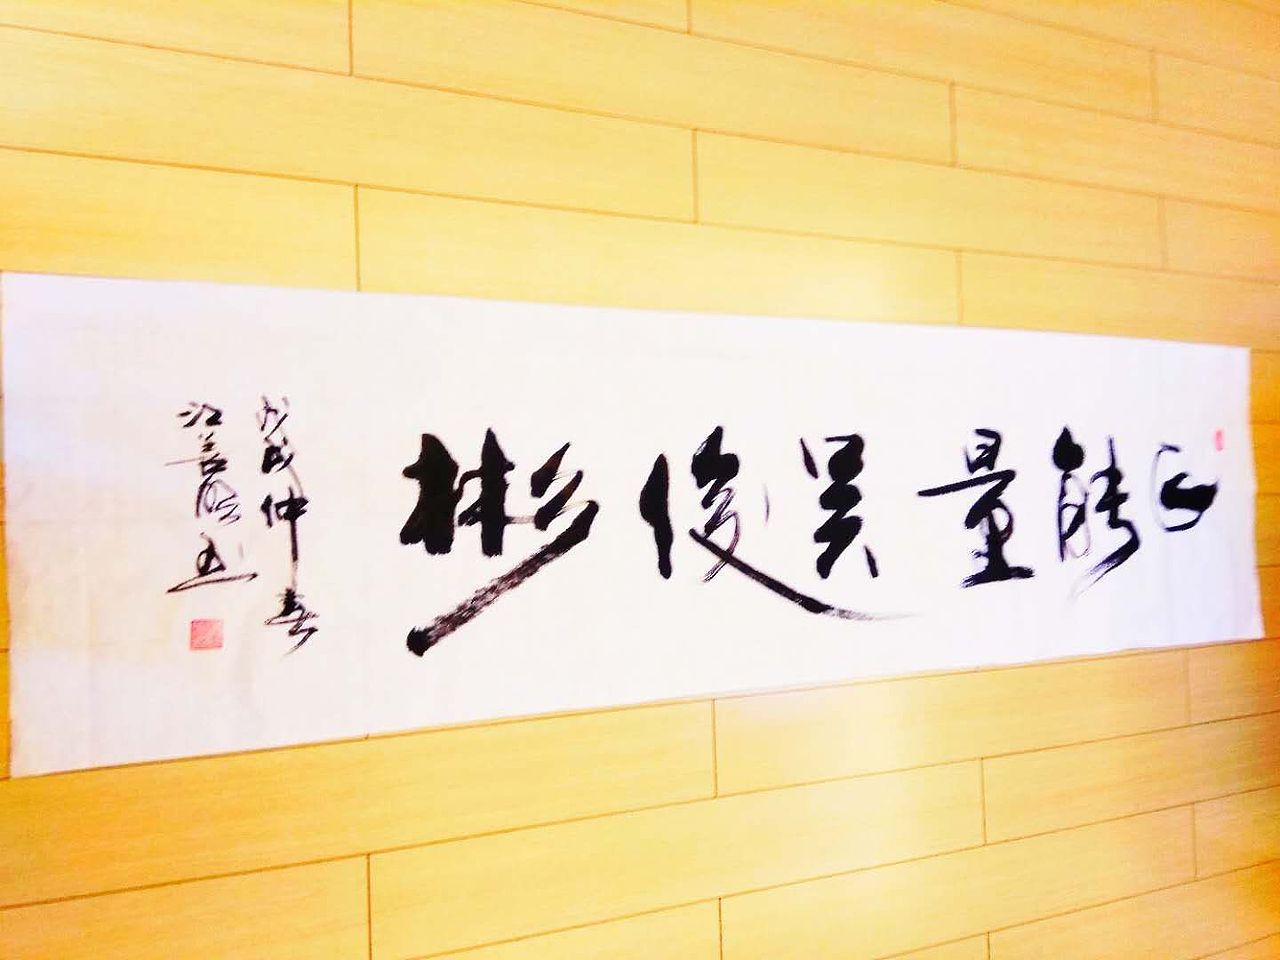 正能量吴俊彬
戊戌仲春
江善书